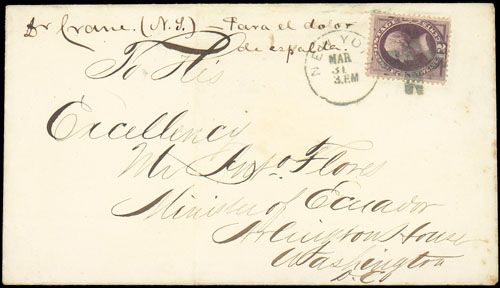 Dr Crane. (N.Y.) – Para el dolor
de espalda.
NEW YO
MAR
31
3 PM
To His
Excellency
Mr Anto. Flores
Minister of Ecuador
Arlington House
Washington
D.C.